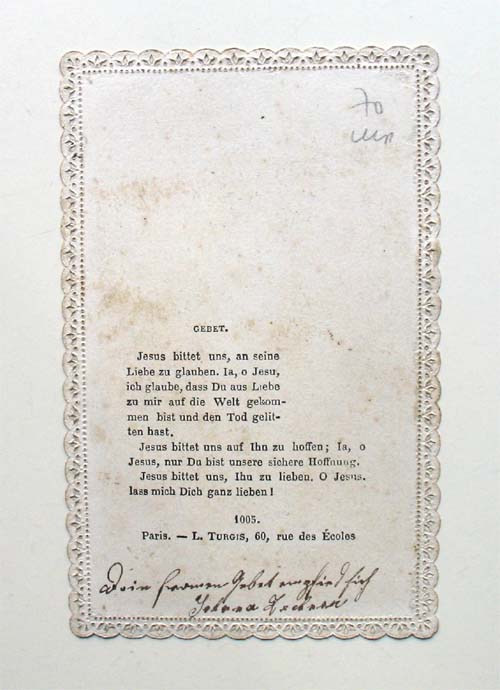 70
GEBET.
Jesus bittet uns, an seine
Liebe zu glauben. Ia, o Jesu,
ich glaube, dass Du aus Liebe
zu mir auf die Welt gekom-
men bist und den Tod gelit-
ten hast.
Jesus bittet uns auf Ihn zu hoffen; Ia, o
Jesus, nur Du bist unsere sichere Hoffnung.
Jesus bittet uns, Ihn zu lieben. O Jesus.
lass mich Dich ganz lieben!
1005.
Paris. — L. TURGIS, 60, rue des Écoles
Dein fromen Gebet empfield sich